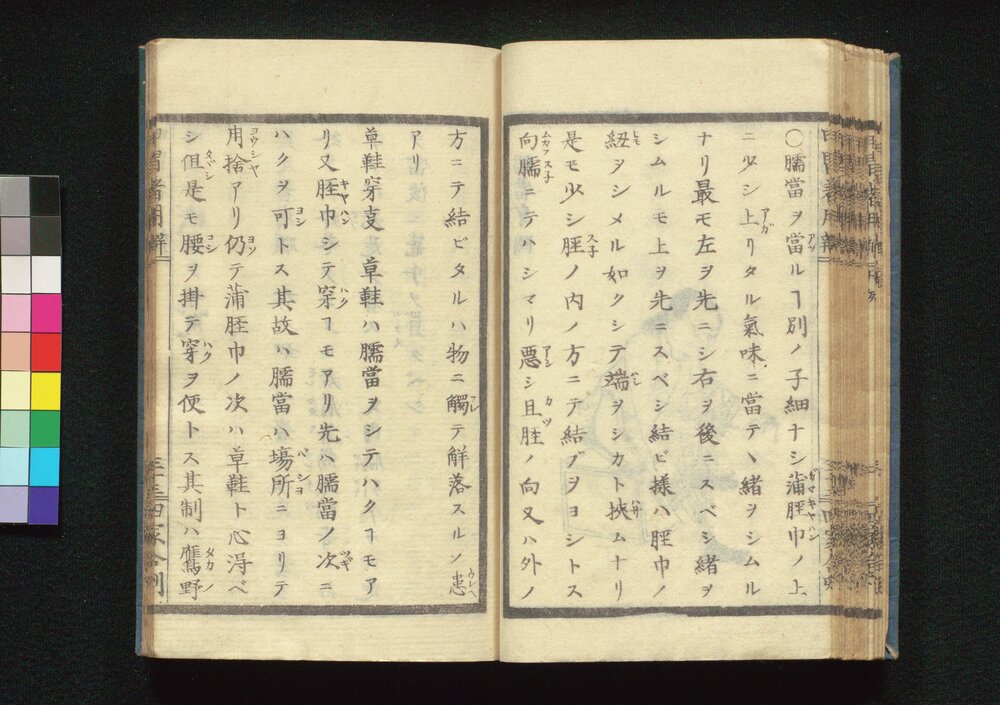 ○臑當ヲ當ルヿ別ノ子細ナシ蒲脛巾ノ上
ニ少シ上リタル氣味ニ當テヽ緒ヲシムル
ナリ最モ左ヲ先ニシ右ヲ後ニスベシ緒ヲ
シムルモ上ヲ先ニスベシ結ビ様ハ脛巾ノ
紐ヲシメル如クシテ端ヲシカト挾ムナリ
是モ少シ脛ノ内ノ方ニテ結ブヲヨシトス
向臑ニテハシマリ悪シ且脛ノ向又ハ外ノ
方ニテ結ビタルハ物ニ觸テ解落スルノ患
アリ
草鞋穿支 草鞋ハ臑當ヲシテハクヿモア
リ又脛巾シテ穿ヿモアリ先ハ臑當ノ次ニ
ハクヲ可トス其故ハ臑當ハ場所ニヨリテ
用捨アリ仍テ蒲脛巾ノ次ハ草鞋ト心得ベ
シ但是モ腰ヲ掛テ穿ヲ便トス其制ハ鷹野